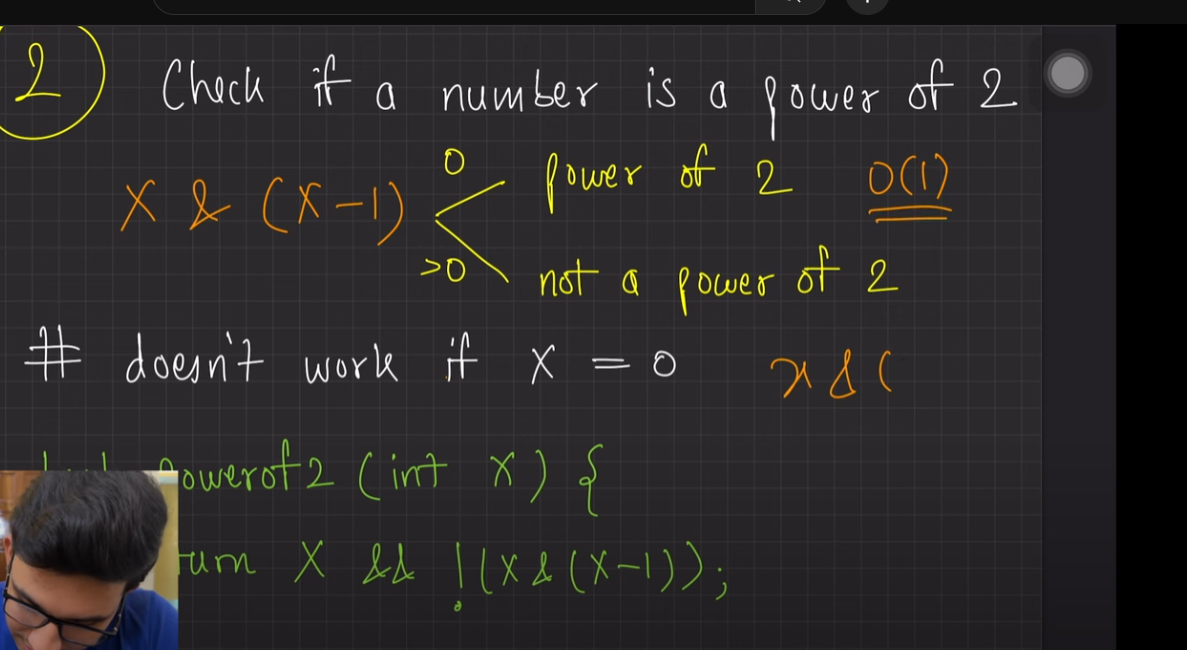 2 Check if a number is a power of 2
X & (X-1)
0 power of 2 O(1)
>0 not a power of 2
# doesn't work if X = 0 x & (
powerof2 (int X) {
X && !(X & (X-1));